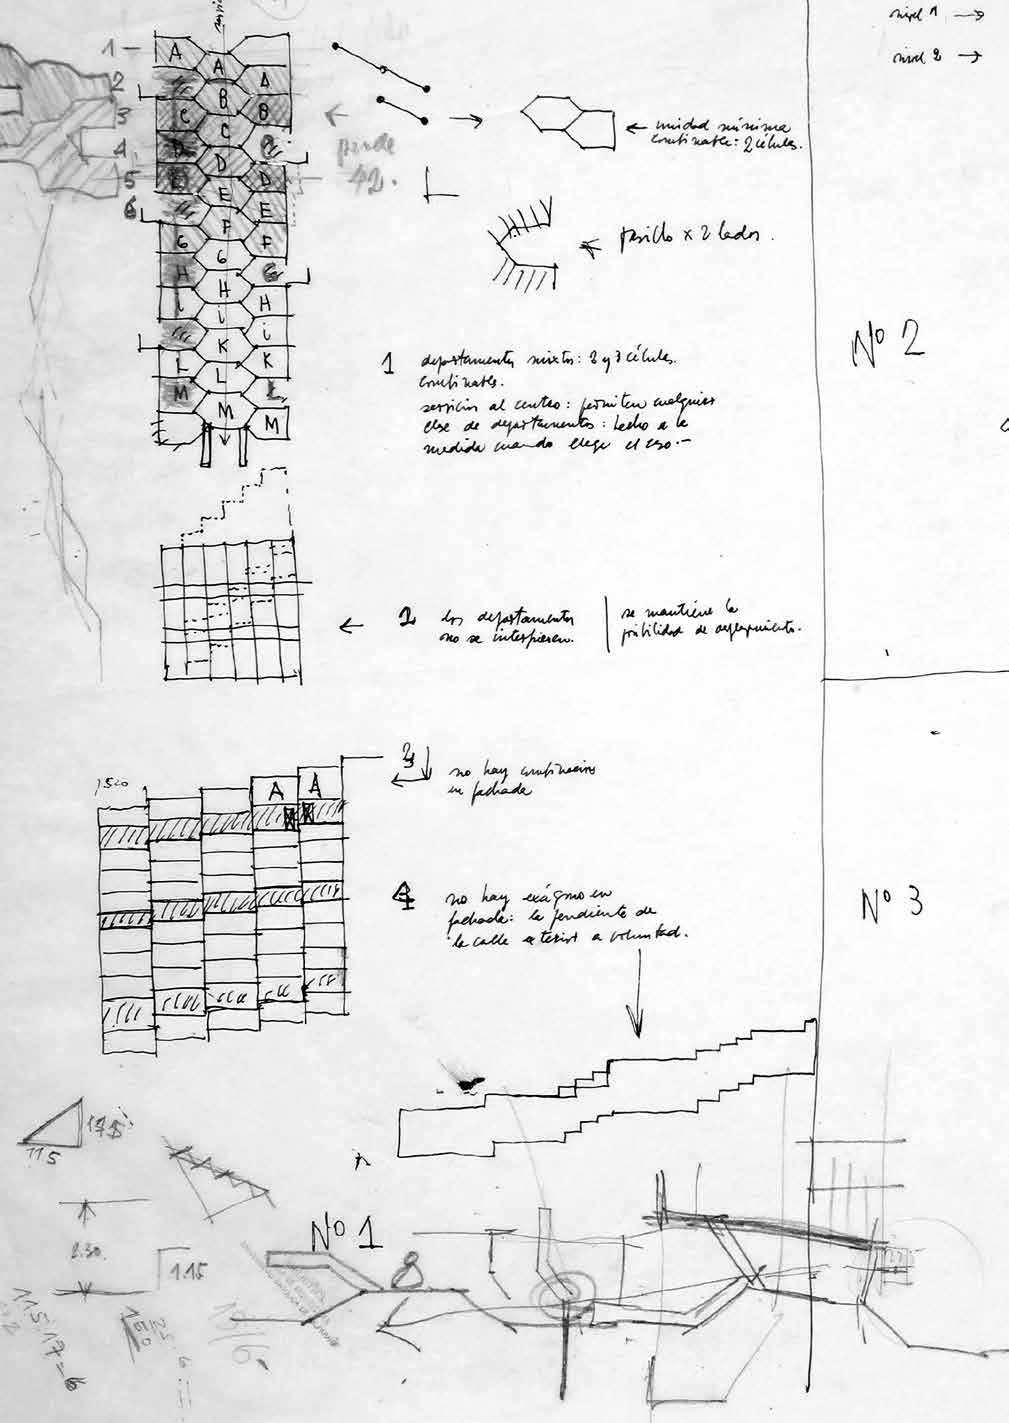 nivel 1
nivel 2
1
2
3
4
5
6
A
A
A
B
B
C
C
D
D
E
E
F
F
G
G
H
H
H
i
i
K
K
L
L
L
M
M
M
pierde
42.
unidad mínima
combinable: 2 células.
pasillo x 2 lados.
1 departamentos mixtos: 2 y 3 células.
combinables.
servicios al centro: permiten cualquier
clase de departamentos: hecho a la
medida cuando elege el caso.-
2 los departamentos
no se interfieren.
se mantiene la
posibilidad de
Nº 2
3
no hay
en fachada
A A
4 no hay exágono en
fachada: la pendiente de
la calle exterior a voluntad.
Nº 3
175
115
2.30
1.15
Nº 1